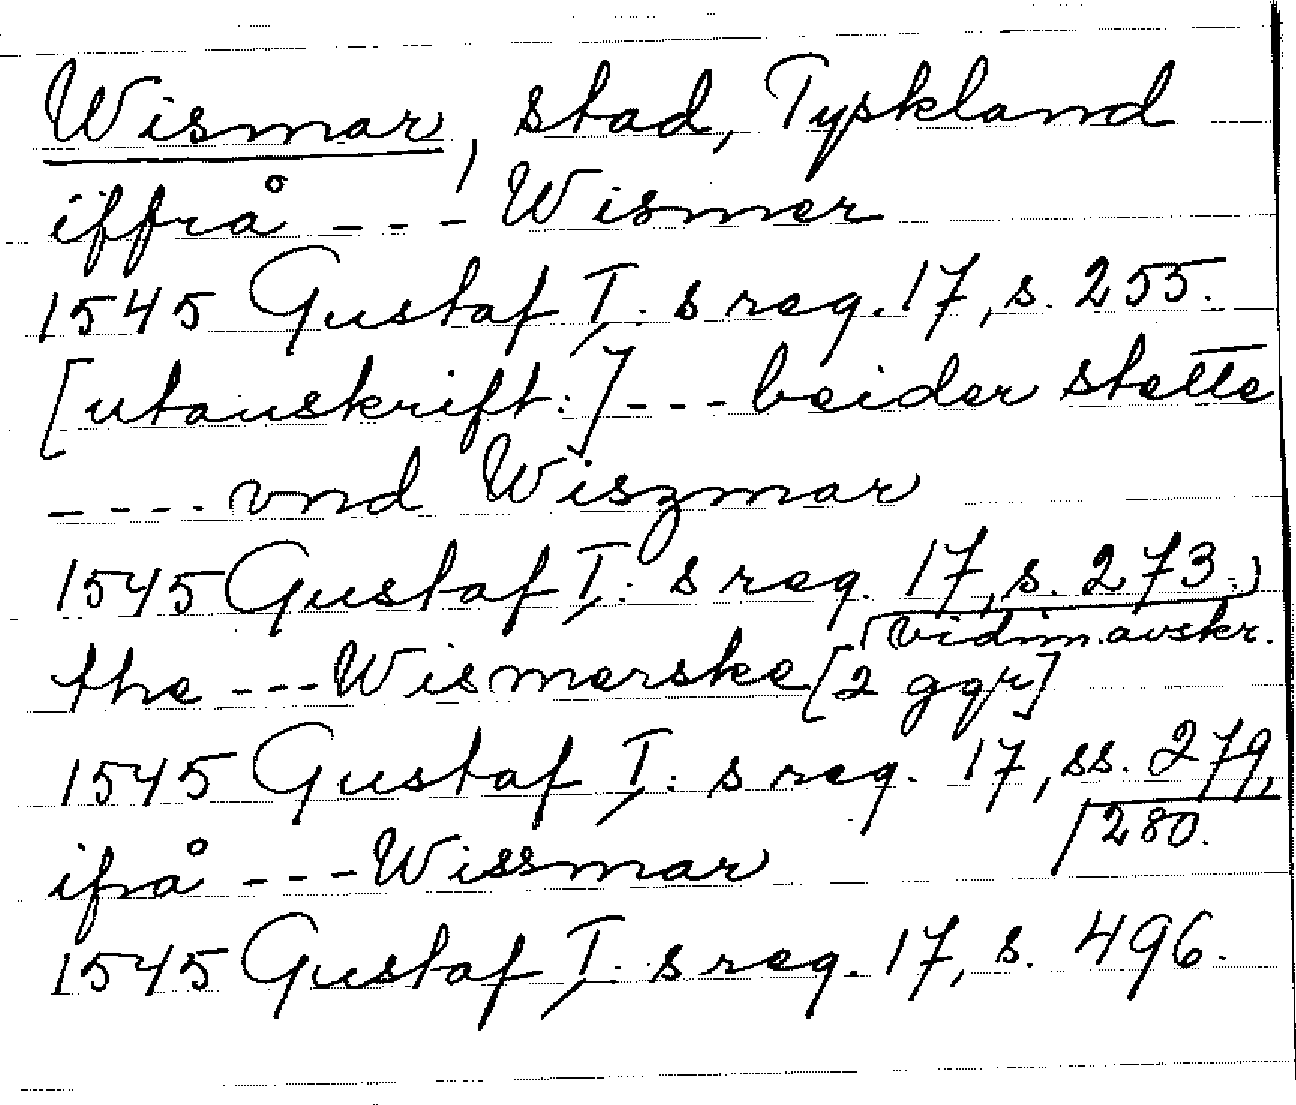 Wismar, stad, Tyskland
iffrå --- Wismer
1545 Gustaf I:s reg. 17, s. 255.
[utanskrift:] --- beider stette
---- vnd Wiszmar
1545 Gustaf I:s reg. 17, s. 273.)
(vidim.avskr.
the --- Wismerske [2 ggr]
1545 Gustaf I:s reg. 17, ss. 279,
280.
ifrå --- Wissmar
1545 Gustaf I:s reg. 17, s. 496.